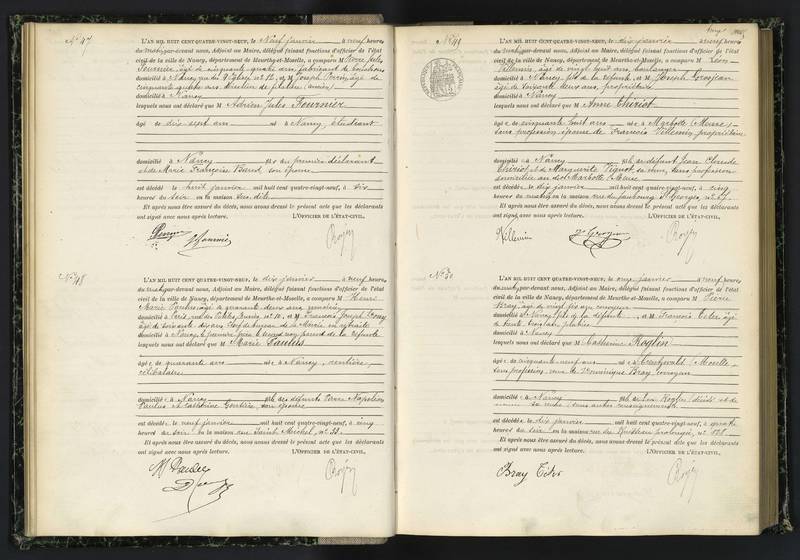 N° 47
L'AN MIL HUIT CENT QUATRE-VINGT-NEUF, le Neuf janvier à neuf heures
du matin par-devant nous, Adjoint au Maire, délégué faisant fonctions d'officier de l'état
civil de la ville de Nancy, département de Meurthe-et-Moselle, a comparu M Pierre Jules
Fournier, âgé de cinquante quatre ans, fabricant de
domicilié à Nancy, rue du N° 12, et M Joseph Perrin, âgé de
cinquante quatre ans, directeur de
domicilié à Nancy
lesquels nous ont déclaré que M Adrien Jules Fournier
âgé de dix sept ans né à Nancy, étudiant
domicilié à Nancy fils du premier déclarant
et de Marie Françoise son épouse
est décédé le huit janvier mil huit cent quatre-vingt-neuf, à six
heures du soir en la maison dite
Et après nous être assuré du décès, nous avons dressé le présent acte que les déclarants
ont signé avec nous après lecture. L'OFFICIER DE L'ÉTAT-CIVIL,
Fournier
N° 48
L'AN MIL HUIT CENT QUATRE-VINGT-NEUF, le dix janvier à neuf heures
du matin par-devant nous, Adjoint au Maire, délégué faisant fonctions d'officier de l'état
civil de la ville de Nancy, département de Meurthe-et-Moselle, a comparu M Henri
Marie Paulus, âgé de quarante deux ans
domicilié à Paris, rue N° 10, et M François Joseph
âgé de soixante dix ans, Chef de bureau de la Mairie en retraite
domicilié à Nancy, le premier frère le second non parent de la défunte
lesquels nous ont déclaré que M Marie Paulus
âgée de quarante ans née à Nancy, rentière,
célibataire
domiciliée à Nancy fille des défunts Pierre Napoléon
Paulus et Catherine son épouse
est décédée le neuf janvier mil huit cent quatre-vingt-neuf, à cinq
heures du soir en la maison rue Saint Michel, n° 33
Et après nous être assuré du décès, nous avons dressé le présent acte que les déclarants
ont signé avec nous après lecture. L'OFFICIER DE L'ÉTAT-CIVIL,
N° 49
L'AN MIL HUIT CENT QUATRE-VINGT-NEUF, le dix janvier à neuf heures
du matin par-devant nous, Adjoint au Maire, délégué faisant fonctions d'officier de l'état
civil de la ville de Nancy, département de Meurthe-et-Moselle, a comparu M Léon
Villemin, âgé de vingt huit ans,
domicilié à Nancy, fils de la défunte, et M Joseph Grosjean
âgé de soixante deux ans, propriétaire
domicilié à Nancy
lesquels nous ont déclaré que M Anne Thiriot
âgée de cinquante huit ans née à Marbotte (Meuse)
sans profession épouse de François Villemin, propriétaire
domiciliée à Nancy fille de défunt Jean Claude
Thiriot et de Marguerite sa veuve, sans profession
domiciliée au dit Marbotte, Meuse
est décédée le dix janvier mil huit cent quatre-vingt-neuf, à cinq
heures du matin en la maison rue du faubourg St Georges, n° 27
Et après nous être assuré du décès, nous avons dressé le présent acte que les déclarants
ont signé avec nous après lecture. L'OFFICIER DE L'ÉTAT-CIVIL,
Villemin
N° 50
L'AN MIL HUIT CENT QUATRE-VINGT-NEUF, le onze janvier à neuf heures
du matin par-devant nous, Adjoint au Maire, délégué faisant fonctions d'officier de l'état
civil de la ville de Nancy, département de Meurthe-et-Moselle, a comparu M Pierre
Bray, âgé de vingt six ans,
domicilié à Nancy, fils de la défunte, et M François âgé
de trente trois ans,
domicilié à Nancy
lesquels nous ont déclaré que M Catherine Roglin
âgée de cinquante neuf ans née à Creutzwald (Moselle)
sans profession, veuve de Dominique Bray,
domiciliée à Nancy fille de Roglin décédé et de
sa veuve sans autres renseignements
est décédée le dix janvier mil huit cent quatre-vingt-neuf, à quatre
heures du soir en la maison rue du prolongée, n°
Et après nous être assuré du décès, nous avons dressé le présent acte que les déclarants
ont signé avec nous après lecture. L'OFFICIER DE L'ÉTAT-CIVIL,
Bray